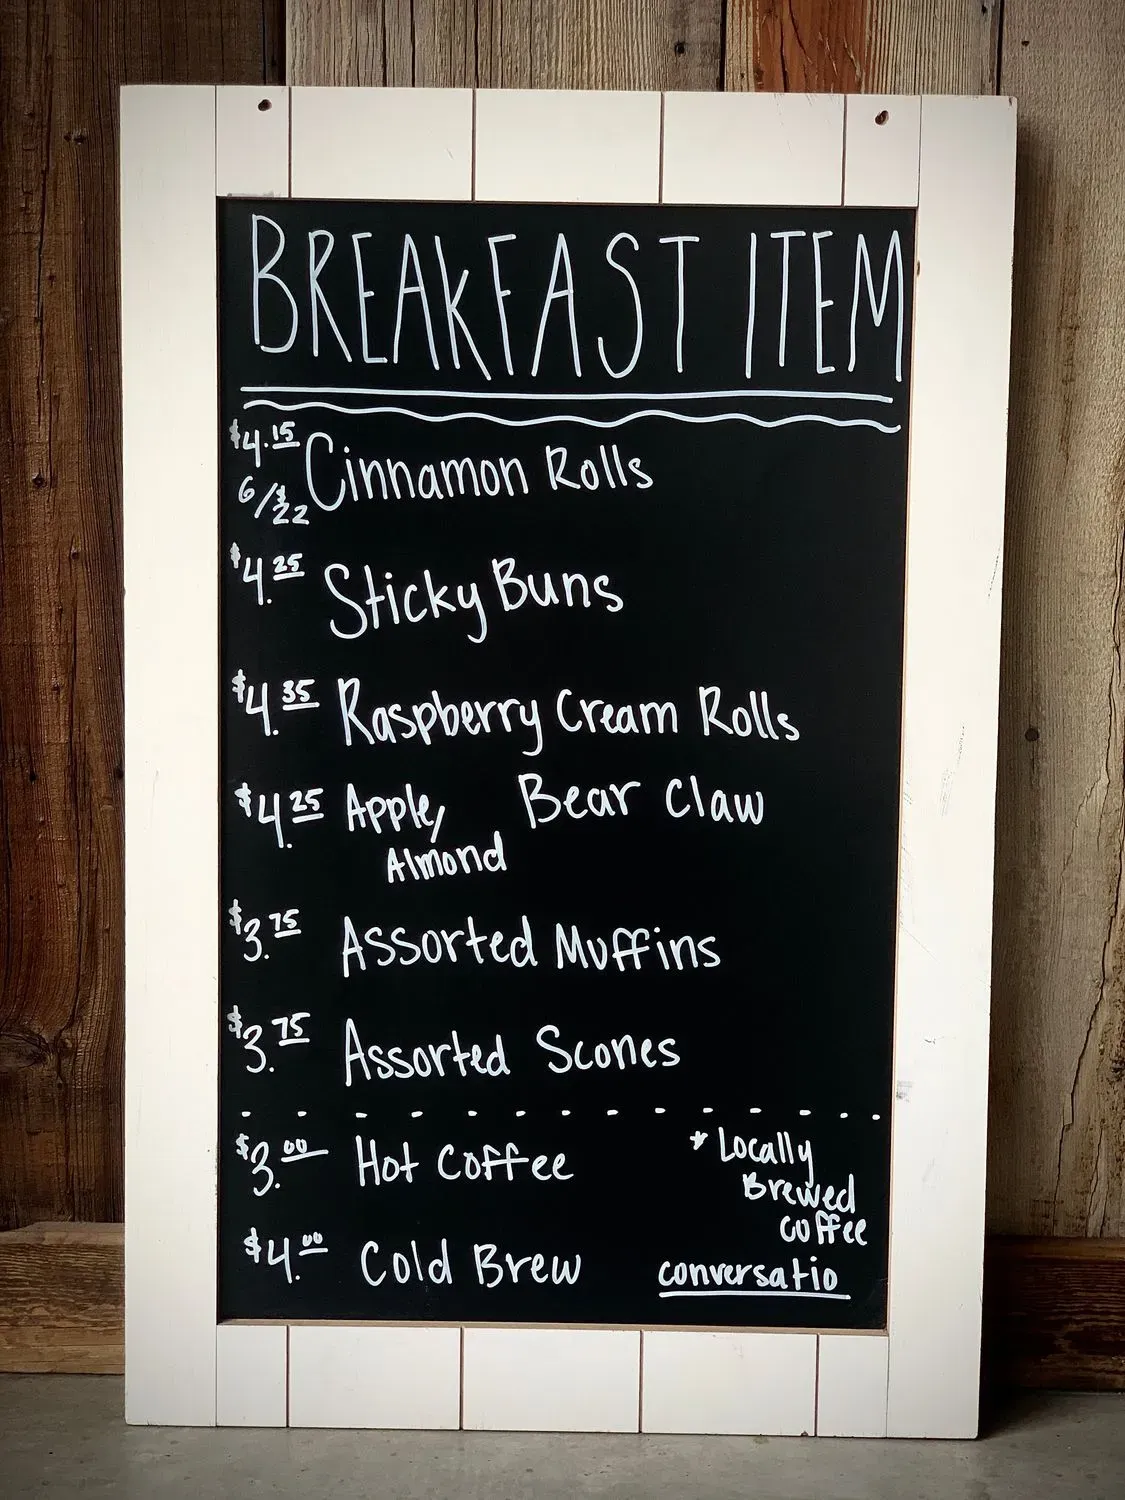 BREAKFAST ITEM
$4.15 Cinnamon Rolls
6/$22
$4.25 Sticky Buns
$4.35 Raspberry Cream Rolls
$4.25 Apple, Bear Claw
Almond
$3.75 Assorted Muffins
$3.75 Assorted Scones
$3.00 Hot Coffee
* Locally
Brewed
Coffee
$4.00 Cold Brew
conversatio